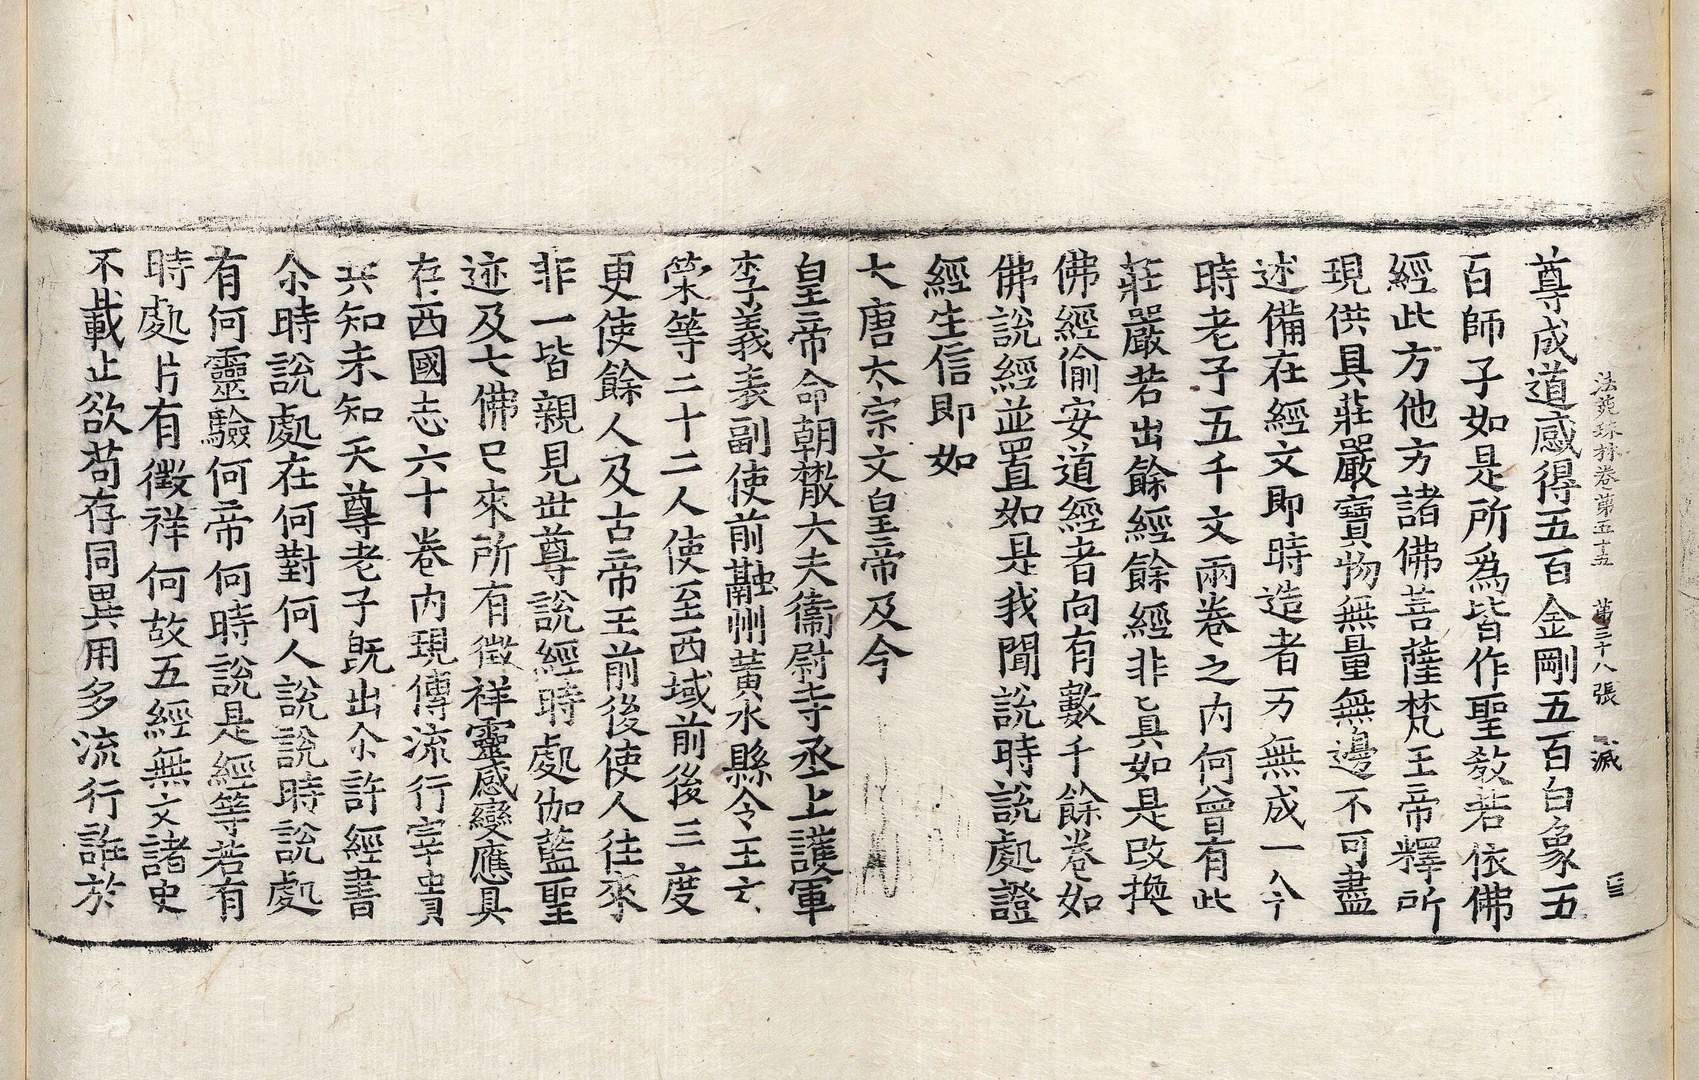 法苑珠林卷第五十五　第三十八張　滅
尊成道感得五百金剛五百白象五
百師子如是所爲皆作聖教若依佛
經此方他方諸佛菩薩梵王帝釋所
現供具莊嚴寶物無量無邊不可盡
述備在經文即時造者万無成一今
時老子五千文兩卷之內何曾有此
莊嚴若出餘經餘經非真如是改換
佛經偷安道經者向有數千餘卷如
佛說經並置如是我聞說時說處證
經生信即如
大唐太宗文皇帝及今
皇帝命朝散大夫衞尉寺丞上護軍
李義表副使前融州黃水縣令王玄
榮等二十二人使至西域前後三度
更使餘人及古帝王前後使人往來
非一皆親見世尊說經時處伽藍聖
迹及七佛已來所有徵祥靈感變應具
存西國志六十卷內現傳流行宰貴
共知未知天尊老子旣出尒許經書
尒時說處在何對何人說說時說處
有何靈驗何帝何時說是經等若有
時處片有徵祥何故五經無文諸史
不載止欲苟存同異用多流行誰於